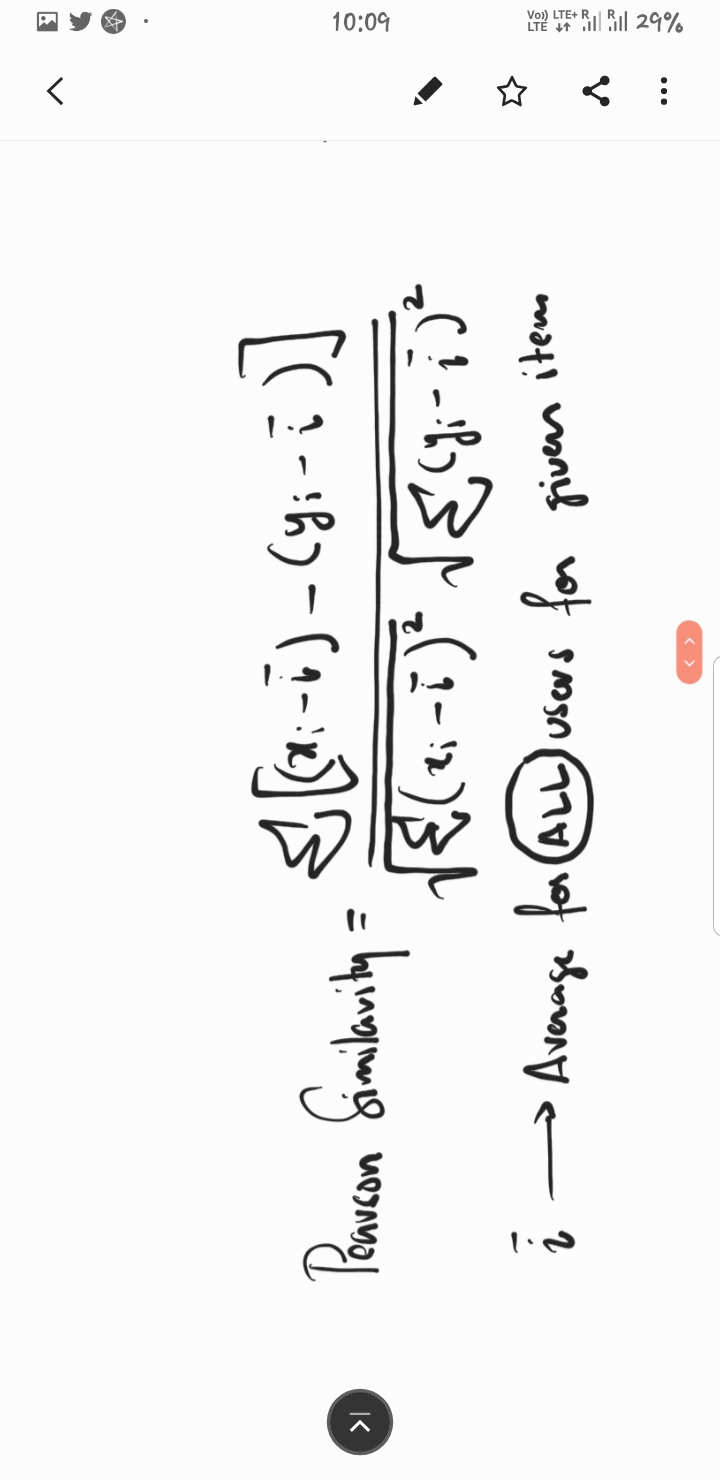 10:09
Vo)) LTE LTE+ R R 29%
Pearson Similarity = Σ[(xᵢ - ī) - (yᵢ - ī)]
√Σ(xᵢ - ī)² √Σ(yᵢ - ī)²
ī → Average for ALL users for given item